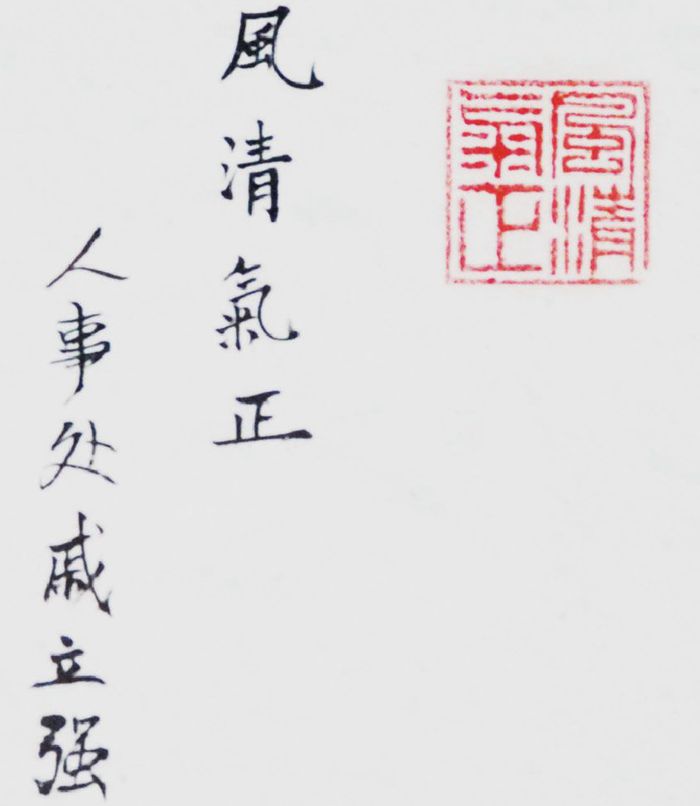 風清
氣正
風清氣正
人事处戚立强